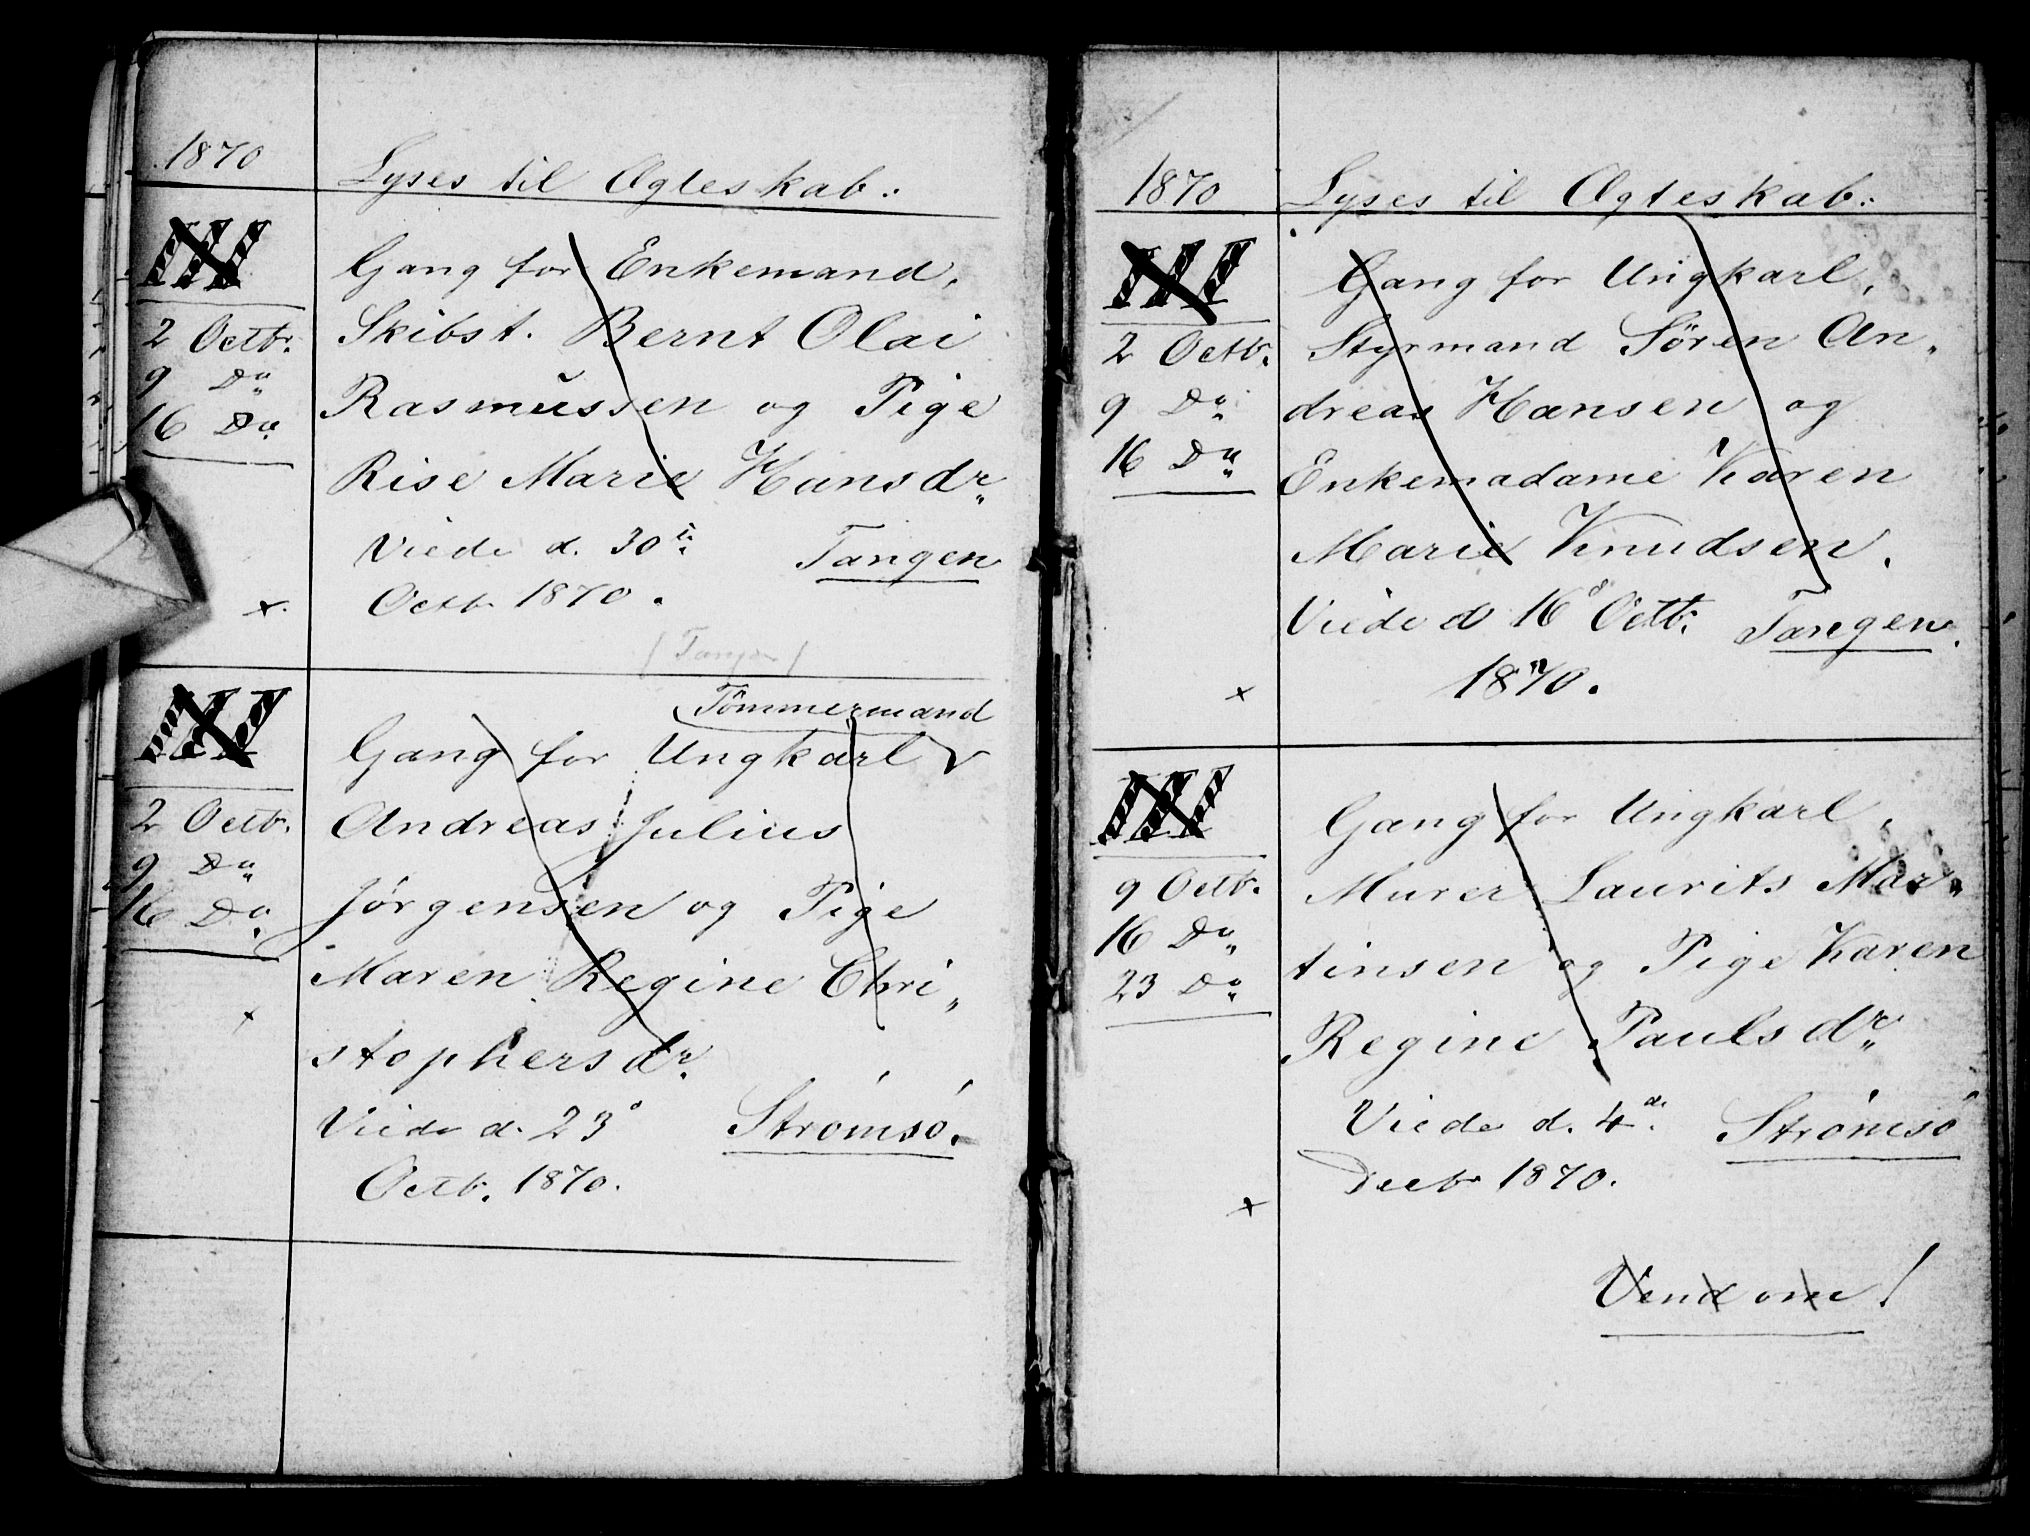 1870
Lyses til Ægteskab:
III
Gang for Enkemand,
2 Octbr.
Skibst. Bernt Olai
9 Do
Rasmussen og Pige
16 Do
Rise Marie Hansdr.
Viede d. 30te
Tangen
Octb. 1870.
x
(Tangen)
III
Tömmermand
Gang for Ungkarl
2 Octb.
Andreas Julius
9 Do
Jörgensen og Pige
16 Do
Maren Regine Chri-
x
stophersdr.
Viede d. 23
Strömsö.
Octb. 1870.
1870
Lyses til Ægteskab:
III
Gang for Ungkarl,
2 Octb.
Styrmand Sören An-
9 Do
dreas Hansen og
16 Do
Enkemadame Karen
Marie Knudsen.
Viede d 16 Octb.
Tangen.
1870.
x
III
Gang for Ungkarl,
9 Octb.
Murer Laurits Mar-
16 Do
tinsen og Pige Karen
23 Do
Regine Paulsdr.
Viede d. 4de
Strömsö
Decbr 1870.
x
Vend om!